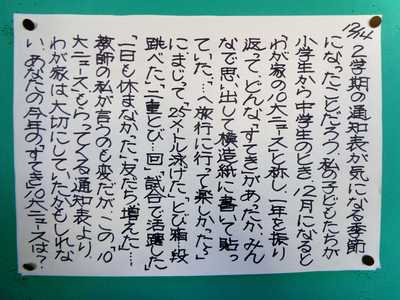 12/14 2学期の通知表が気になる季節
になったことだろう。私の子どもたちが
小学生から中学生のとき、12月になると
「わが家の10大ニュース」と称し、一年を振り
返って、どんな「すてき」があったか、みん
なで思い出して模造紙に書いて貼っ
ていた。「…へ旅行に行って楽しかった」
にまじって、「25メートル泳げた」「とび箱…段
跳べた」「二重とび…回」「試合で活躍した」
「一日も休まなかった」「友だち増えた」…
教師の私が言うのも変だが、この「10
大ニュース」もらってくる通知表より、
わが家は大切にしていたかもしれな
い。あなたの今年の「すてき」10大ニュースは?